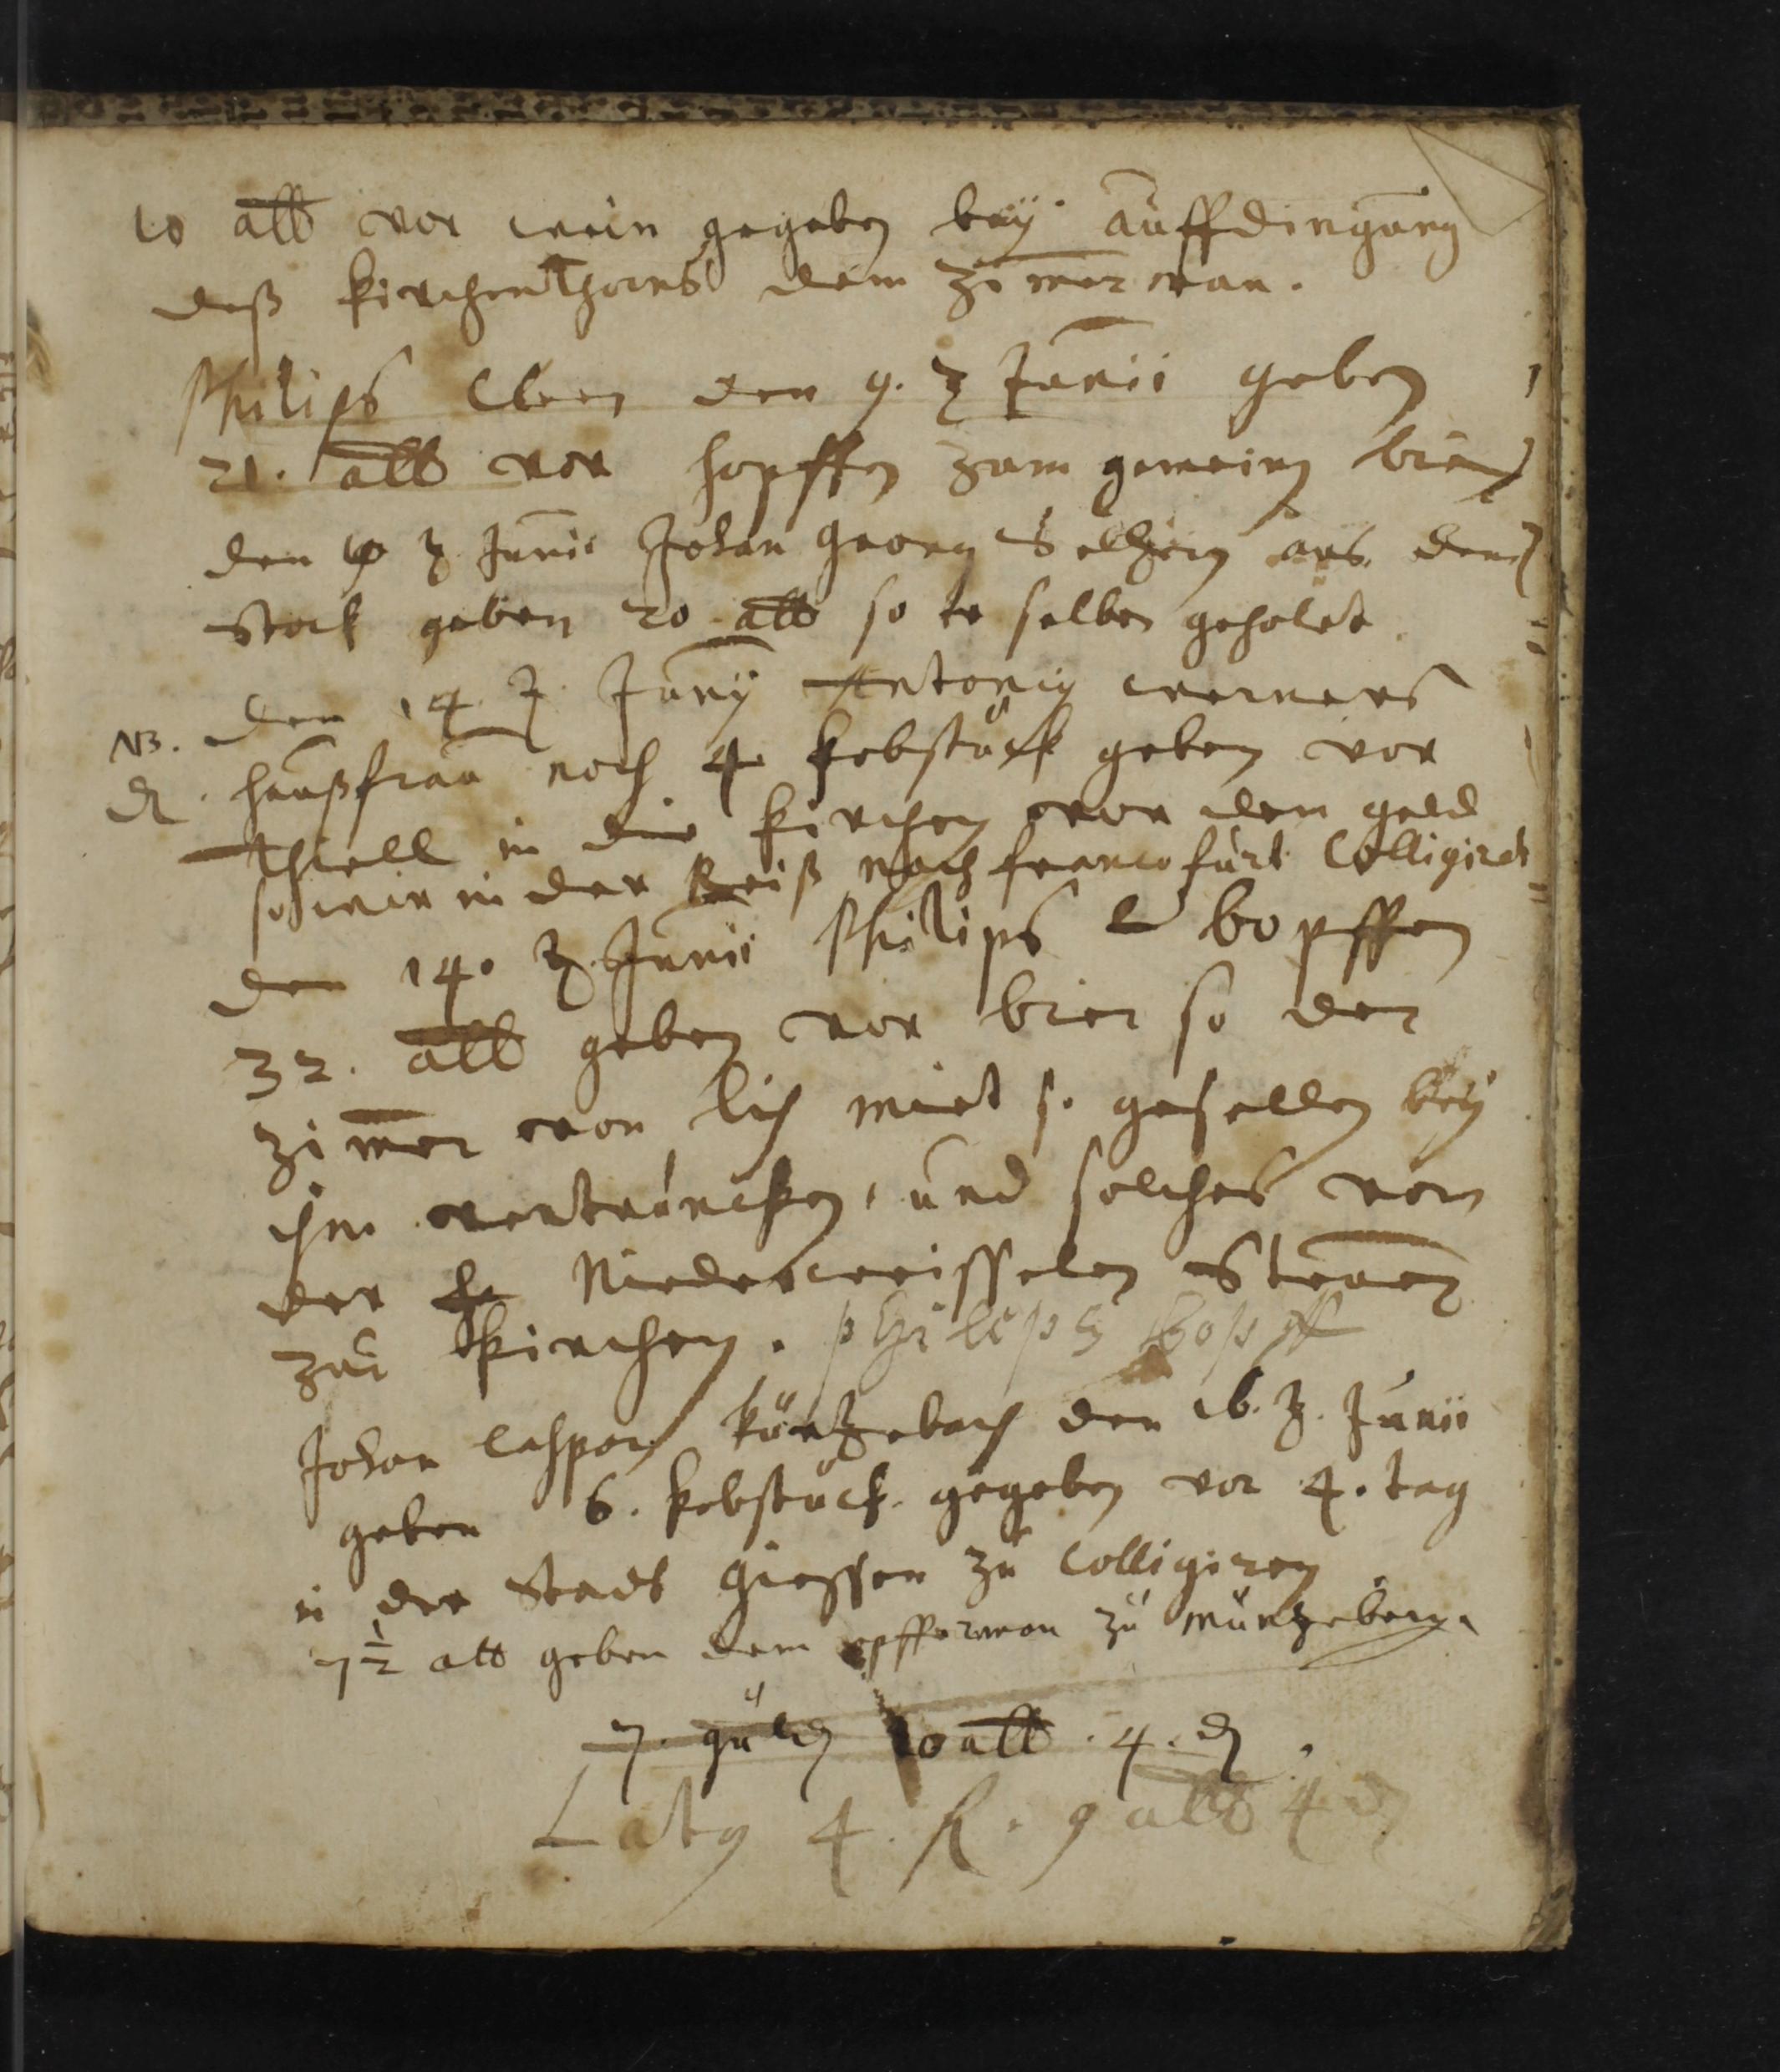 10 alb vor wein gegeben beÿ auffdingung
deß kirchenthorns dem Zimerman.
Philips den 9. Junii geben
21. alb vor hopffen zum gemeinen bier
den Junii Johan Georg aus dem
Stock geben 20 alb so er selber geholet.
NB. den 14. Junÿ Antonij werners
haußfrau noch 4 kobstück geben vor
thiell in die kirchen von dem geld
so wir in der Reiß nach francofurt Colligirt
den 14. Junii Philips bopffen
32. alb geben vor bier so der
Zimer von lich mit s. gesellen beÿ
ihm vertruncken, und solches von
der Niederweisselen Steuer
zur kirchen. philips bopff
Johan Casper kürtzebach den 16. Junii
geben 6. kobstück gegeben vor 4. tag
in der Stadt Giessen zu Colligiren
7½ alb geben dem opfferman zu Müntzeberg.
7. güld 10 alb. 4. d
Laty 4. fl. 9 alb 4 d